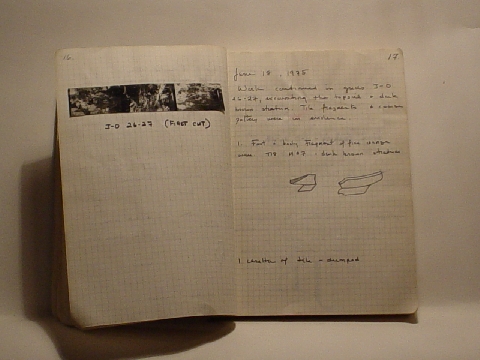 16.
J-O 26-27 (FIRST CUT)
17
June 18, 1975
Work continued in grids J-O
26-27, excavating the topsoil & dark
brown stratum. Tile fragments & coarse
pottery were in evidence.
1. Foot & body fragment of fine ware
were TTB dark brown stratum
1. of tile - stamped